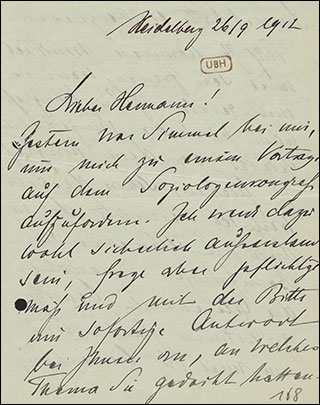 Heidelberg 26/9 1912
UBH
Lieber Hermann!
Gestern war Simmel bei mir,
um mich zu einem Vortrag
auf dem Soziologenkongreß
aufzufordern. Ich werde dazu
wohl sicherlich außerstande
sein, frage aber pflichtge
mäß und mit der Bitte
um sofortige Antwort
bei Ihnen an, an welches
Thema Sie gedacht hatten.
168